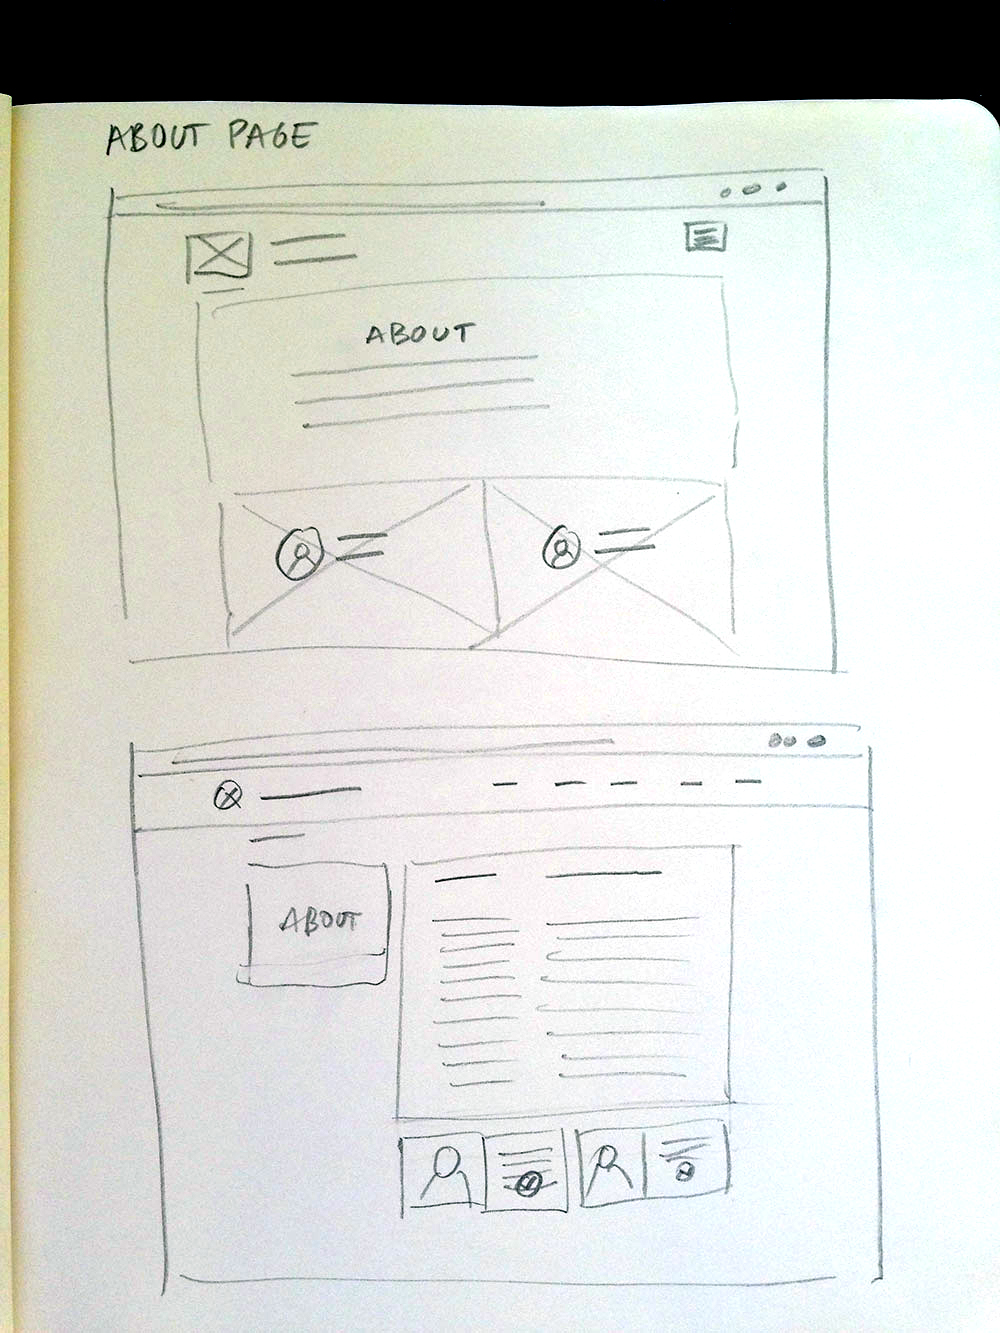 ABOUT PAGE
ABOUT
ABOUT